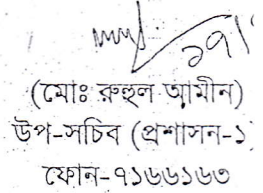 ১৭।
(মোঃ রুহুল আমীন)
উপ-সচিব (প্রশাসন-১
ফোন-৭১৬৬১৬৩